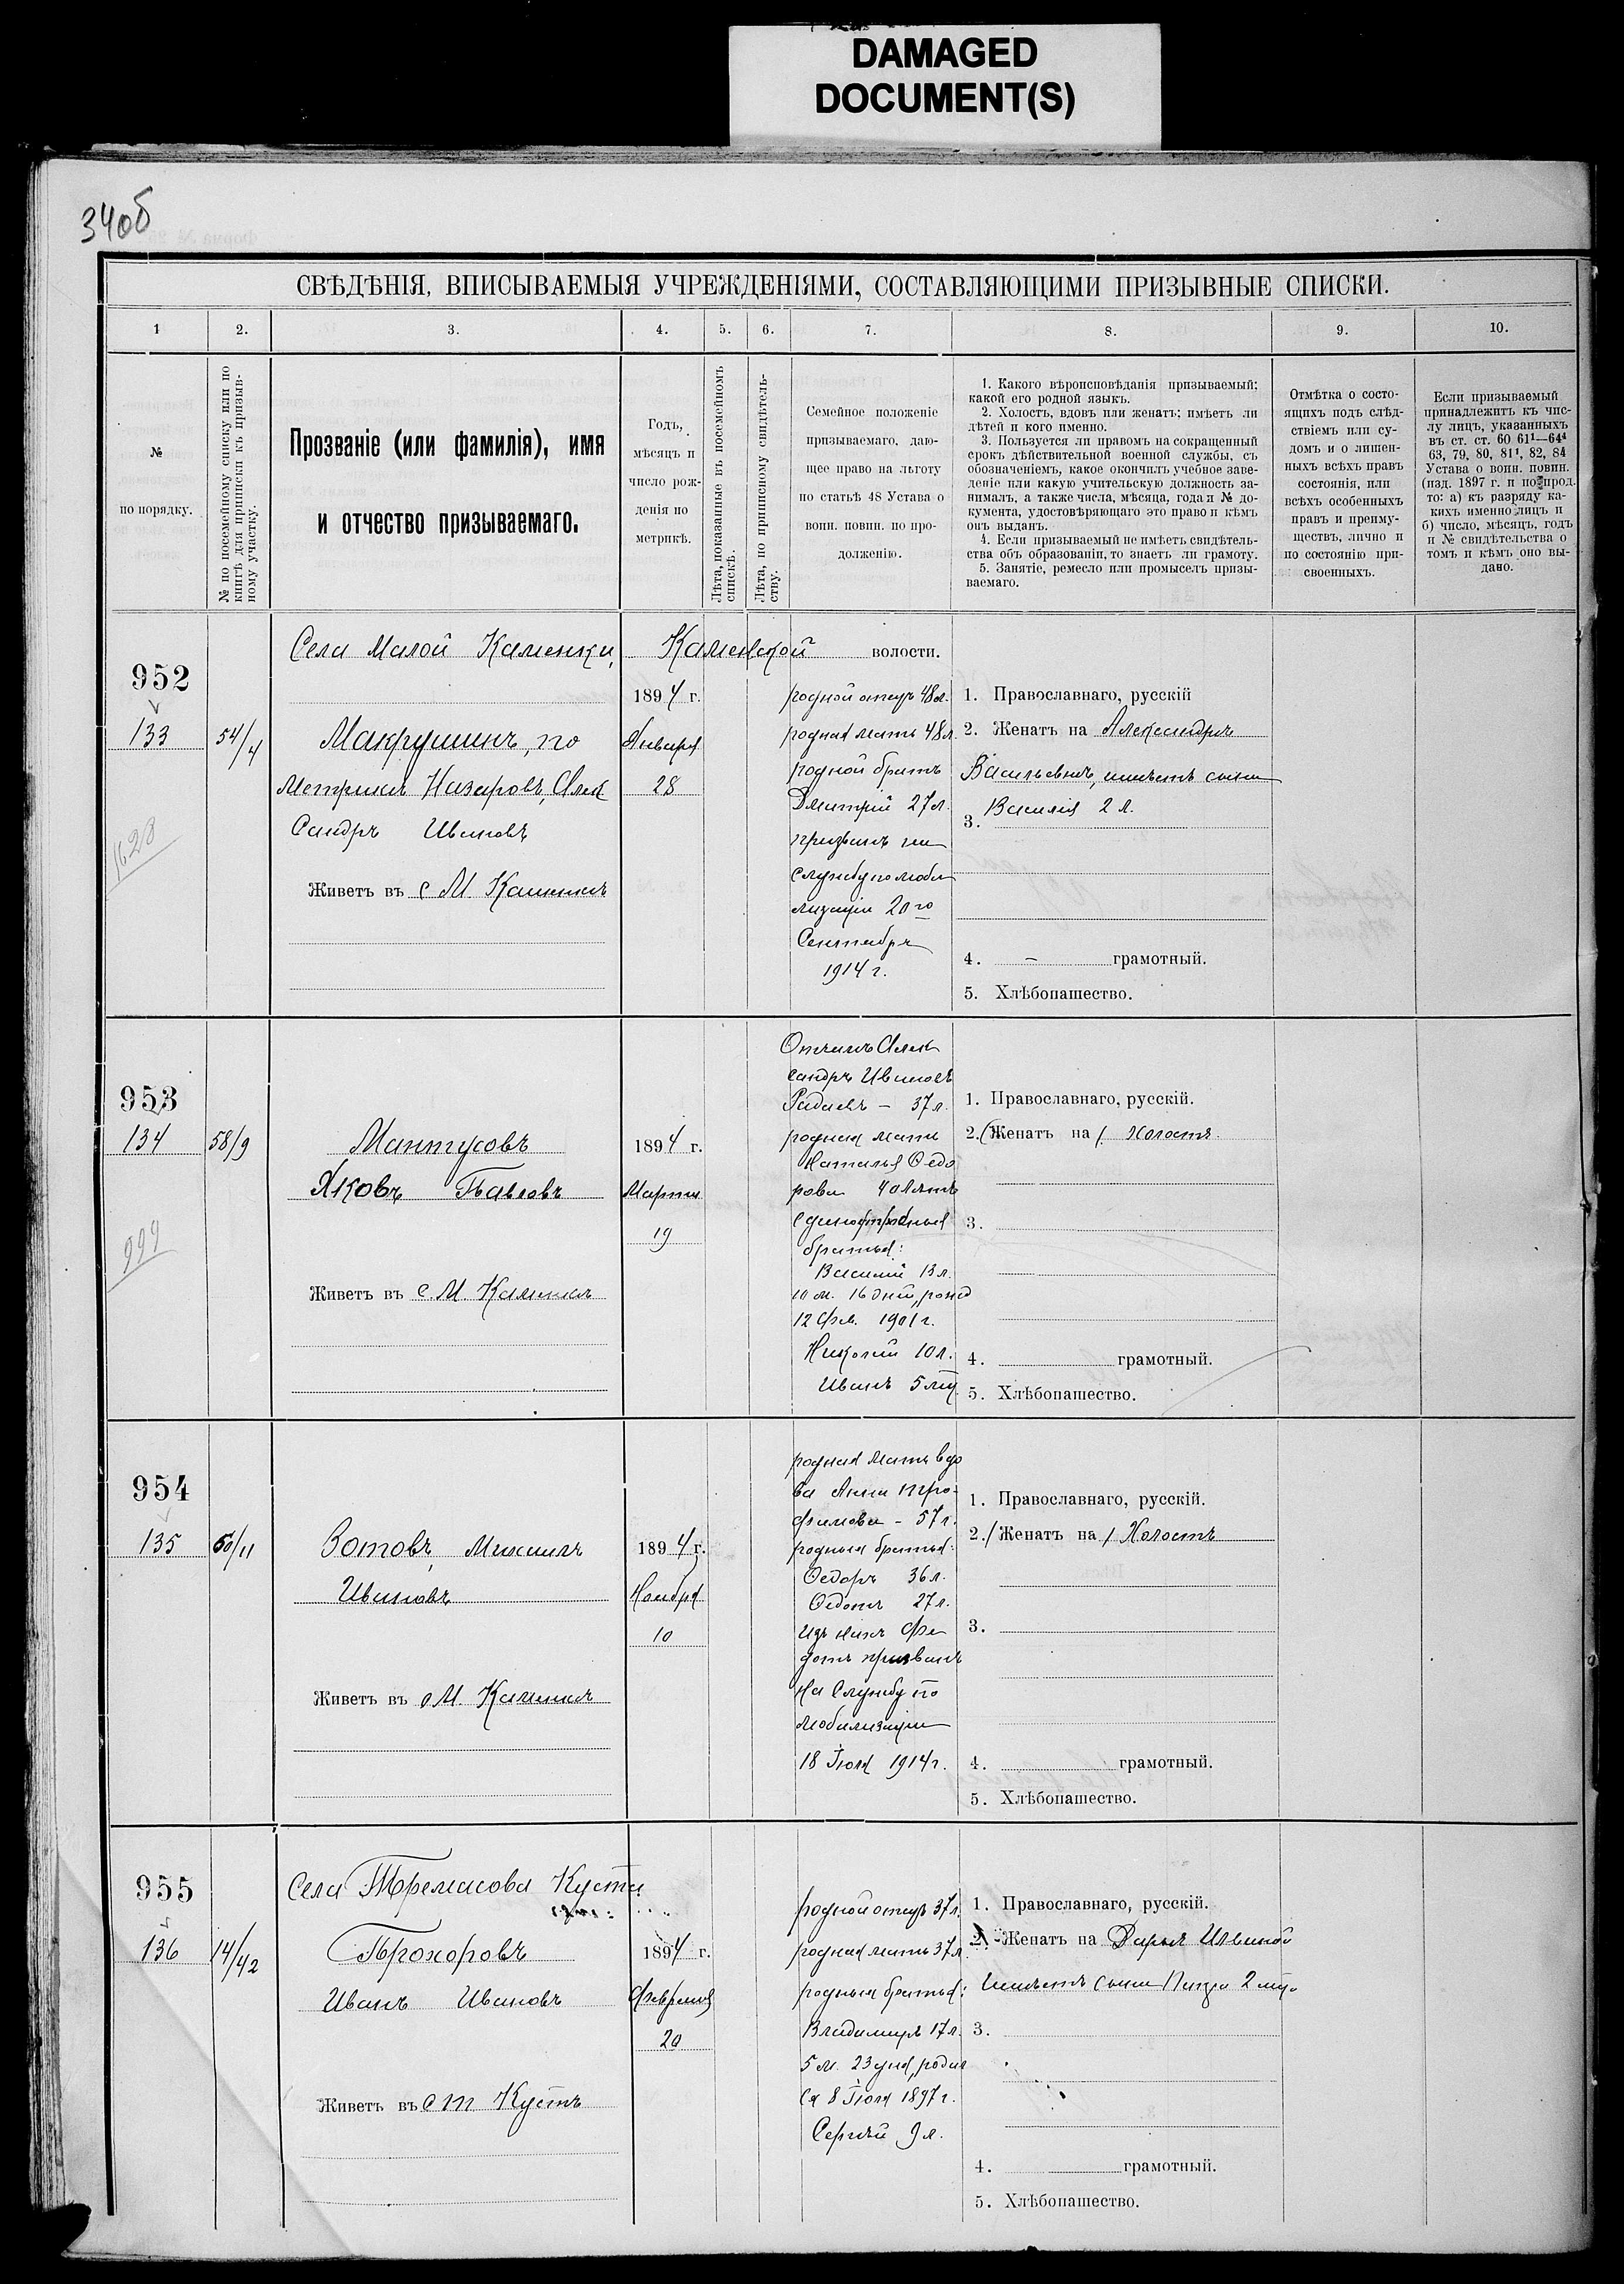 DAMAGED
DOCUMENT(S)
340б
СВѢДѢНІЯ, ВПИСЫВАЕМЫЯ УЧРЕЖДЕНІЯМИ, СОСТАВЛЯЮЩИМИ ПРИЗЫВНЫЕ СПИСКИ.
1 2. 3. 4. 5. 6. 7. 8. 9. 10.
№
по порядку.
№ по посемейному списку или по
книгѣ для приписки къ призыв-
ному участку.
Прозваніе (или фамилія), имя
и отчество призываемаго.
Годъ,
мѣсяцъ и
число рож-
денія по
метрикѣ.
Лѣта, показанные въ посемейномъ
спискѣ.
Лѣта, по приписному свидѣтель-
ству.
Семейное положеніе
призываемаго, даю-
щее право на льготу
по статьѣ 48 Устава о
воин. повин. по про-
долженію.
1. Какого вѣроисповѣданія призываемый;
какой его родной языкъ.
2. Холостъ, вдовъ или женатъ; имѣетъ ли
дѣтей и кого именно.
3. Пользуется ли правомъ на сокращенный
срокъ дѣйствительной военной службы, съ
обозначеніемъ, какое окончилъ учебное заве-
деніе или какую учительскую должность за-
нималъ, а также числа, мѣсяца, года и № до-
кумента, удостовѣряющаго это право и кѣмъ
онъ выданъ.
4. Если призываемый не имѣетъ свидѣтель-
ства объ образованіи, то знаетъ ли грамоту.
5. Занятіе, ремесло или промыселъ призы-
ваемаго.
Отмѣтка о состо-
ящихъ подъ слѣд-
ствіемъ или су-
домъ и о лишен-
ныхъ всѣхъ правъ
состоянія, или
всѣхъ особенныхъ
правъ и преиму-
ществъ, лично и
по состоянію при-
своенныхъ.
Если призываемый
принадлежитъ къ чис-
лу лицъ, указанныхъ
въ ст. ст. 60 61¹—64⁴
63, 79, 80, 81¹, 82, 84
Устава о воин. повин.
(изд. 1897 г. и по прод.
то: а) къ разряду ка-
кихъ именно лицъ и
б) число, мѣсяцъ, годъ
и № свидѣтельства о
томъ и кѣмъ оно вы-
дано.
Села Малой Каменки, Каменской волости.
952
133
54/4
1628
Макрушинъ, по
Метрикѣ Назаровъ, Алек
сандръ Ивановъ
Живетъ въ с М. Каменкѣ
1894 г.
Января
28
родной отецъ 48 л.
родная мать 48 л.
родной братъ
Дмитрій 27 л.
призванъ на
службу по моби
лизаціи 20го
Сентября
1914 г.
1. Православнаго, русскій
2. Женатъ на Александрѣ
Васильевнѣ, имѣетъ сына
Василія 2 л.
3.
4. – грамотный.
5. Хлѣбопашество.
953
134
58/9
999
Мантусовъ
Яковъ Павловъ
Живетъ въ с. М. Каменкѣ
1894 г.
Марта
19
Отчимъ Алек
сандръ Ивановъ
Радаевъ – 37 л.
родная мать
Наталья Ѳедо
рова 40 лѣтъ
братья:
Василій 13 л.
10 м. 16 дней, рожд
12 Фев. 1901 г.
Николай 10 л.
Иванъ 5 лѣт
1. Православнаго, русскій.
2. (Женатъ на) Холостъ.
3.
4. грамотный.
5. Хлѣбопашество.
954
135
60/11
Зотовъ, Михаилъ
Ивановъ
Живетъ въ с М. Каменкѣ
1894 г.
Ноября
10
родная мать вдо
ва Анна Тро-
фимова – 57 л.
родныя братья:
Ѳедоръ 36 л.
Ѳедотъ 27 л.
изъ нихъ Фе
дотъ призванъ
на Службу по
мобилизаціи
18 Іюля 1914 г.
1. Православнаго, русскій.
2. (Женатъ на) Холостъ
3.
4. грамотный.
5. Хлѣбопашество.
Села Тремасова Куста
955
136
14/42
Прохоровъ
Иванъ Ивановъ
Живетъ въ с Т Кустѣ
1894 г.
Февраля
20
родной отецъ 37 л.
родная мать 37 л.
родныя братья:
Владимиръ 17 л.
5 м. 23 дня, родил
ся 8 Іюля 1897 г.
Сергѣй 9 л.
1. Православнаго, русскій.
2. Женатъ на Дарьѣ Ильиной
Имѣетъ сына 2 лѣт.
3.
4. грамотный.
5. Хлѣбопашество.